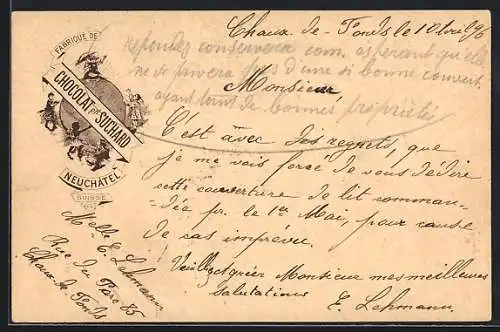 FABRIQUE DE
CHOCOLAT PH. SUCHARD
NEUCHÂTEL
SUISSE
Chaux-de-Fonds le 10 Avril 96
repondez conservera com. esperant qu'elle
ne se privera pas d'une si bonne couvert.
ayant tant de bonnes propriétés
Monsieur
C'est avec des regrets, que
je me vois forcé de vous dédire
cette couverture de lit comman-
dée pr. le 1er Mai, pour cause
de cas imprévu.
Veuillez agréer Monsieur mes meilleures
salutations
E. Lehmann.
Melle E. Lehmann
Rue du Parc 85
Chaux de Fonds